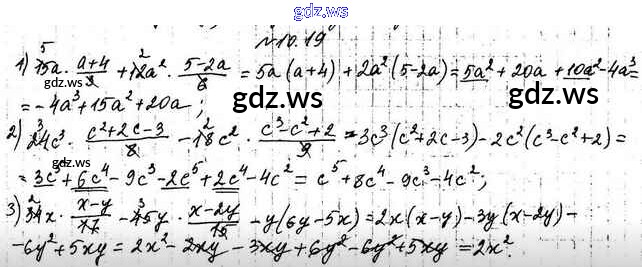 gdz.ws
gdz.ws
№10.19
1) 15a · (a+4)/3 + 12a² · (5-2a)/6 = 5a(a+4) + 2a²(5-2a) = 5a² + 20a + 10a² - 4a³ =
= -4a³ + 15a² + 20a;
gdz.ws
gdz.ws
2) 24c³ · (c²+2c-3)/8 - 18c² · (c³-c²+2)/9 = 3c³(c²+2c-3) - 2c²(c³-c²+2) =
= 3c⁵ + 6c⁴ - 9c³ - 2c⁵ + 2c⁴ - 4c² = c⁵ + 8c⁴ - 9c³ - 4c²;
3) 34x · (x-y)/17 - 45y · (x-2y)/15 - y(6y-5x) = 2x(x-y) - 3y(x-2y) -
-6y² + 5xy = 2x² - 2xy - 3xy + 6y² - 6y² + 5xy = 2x².
gdz.ws
gdz.ws